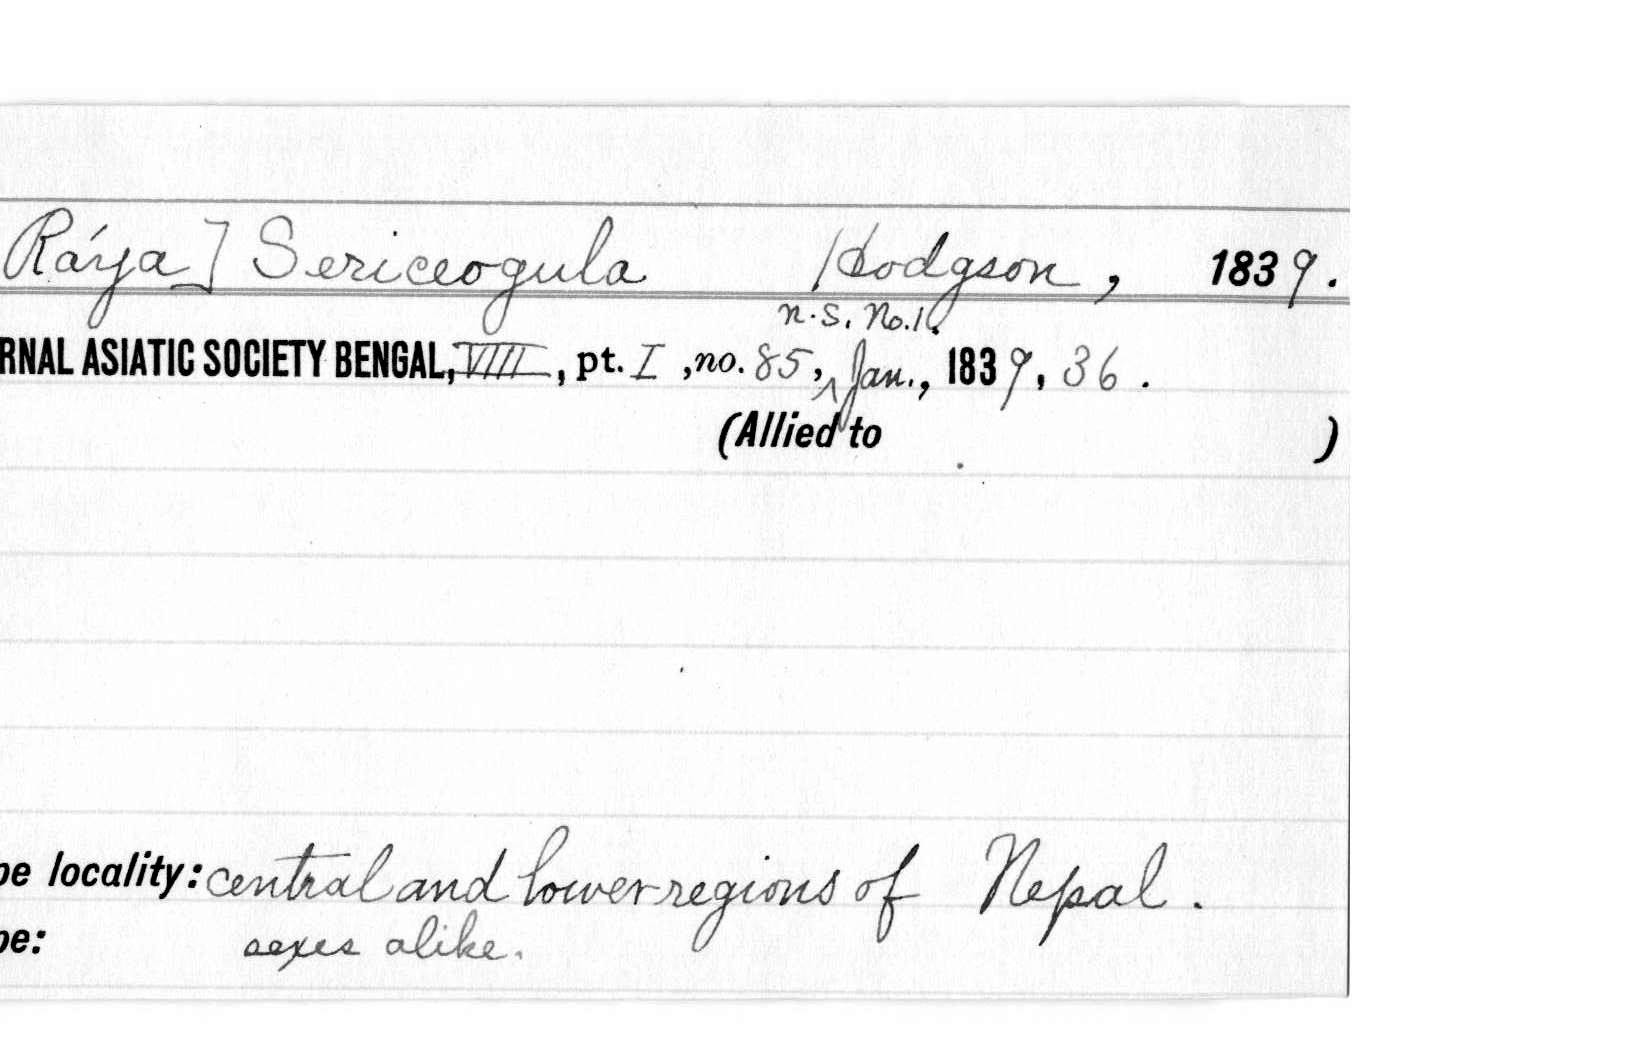 Ráya] Sericeogula Hodgson, 1839.
n.S. No.1.
RNAL ASIATIC SOCIETY BENGAL, VIII, pt. I, no. 85, ^ Jan., 1839, 36.
(Allied to )
pe locality: central and lower regions of Nepal.
pe: sexes alike.